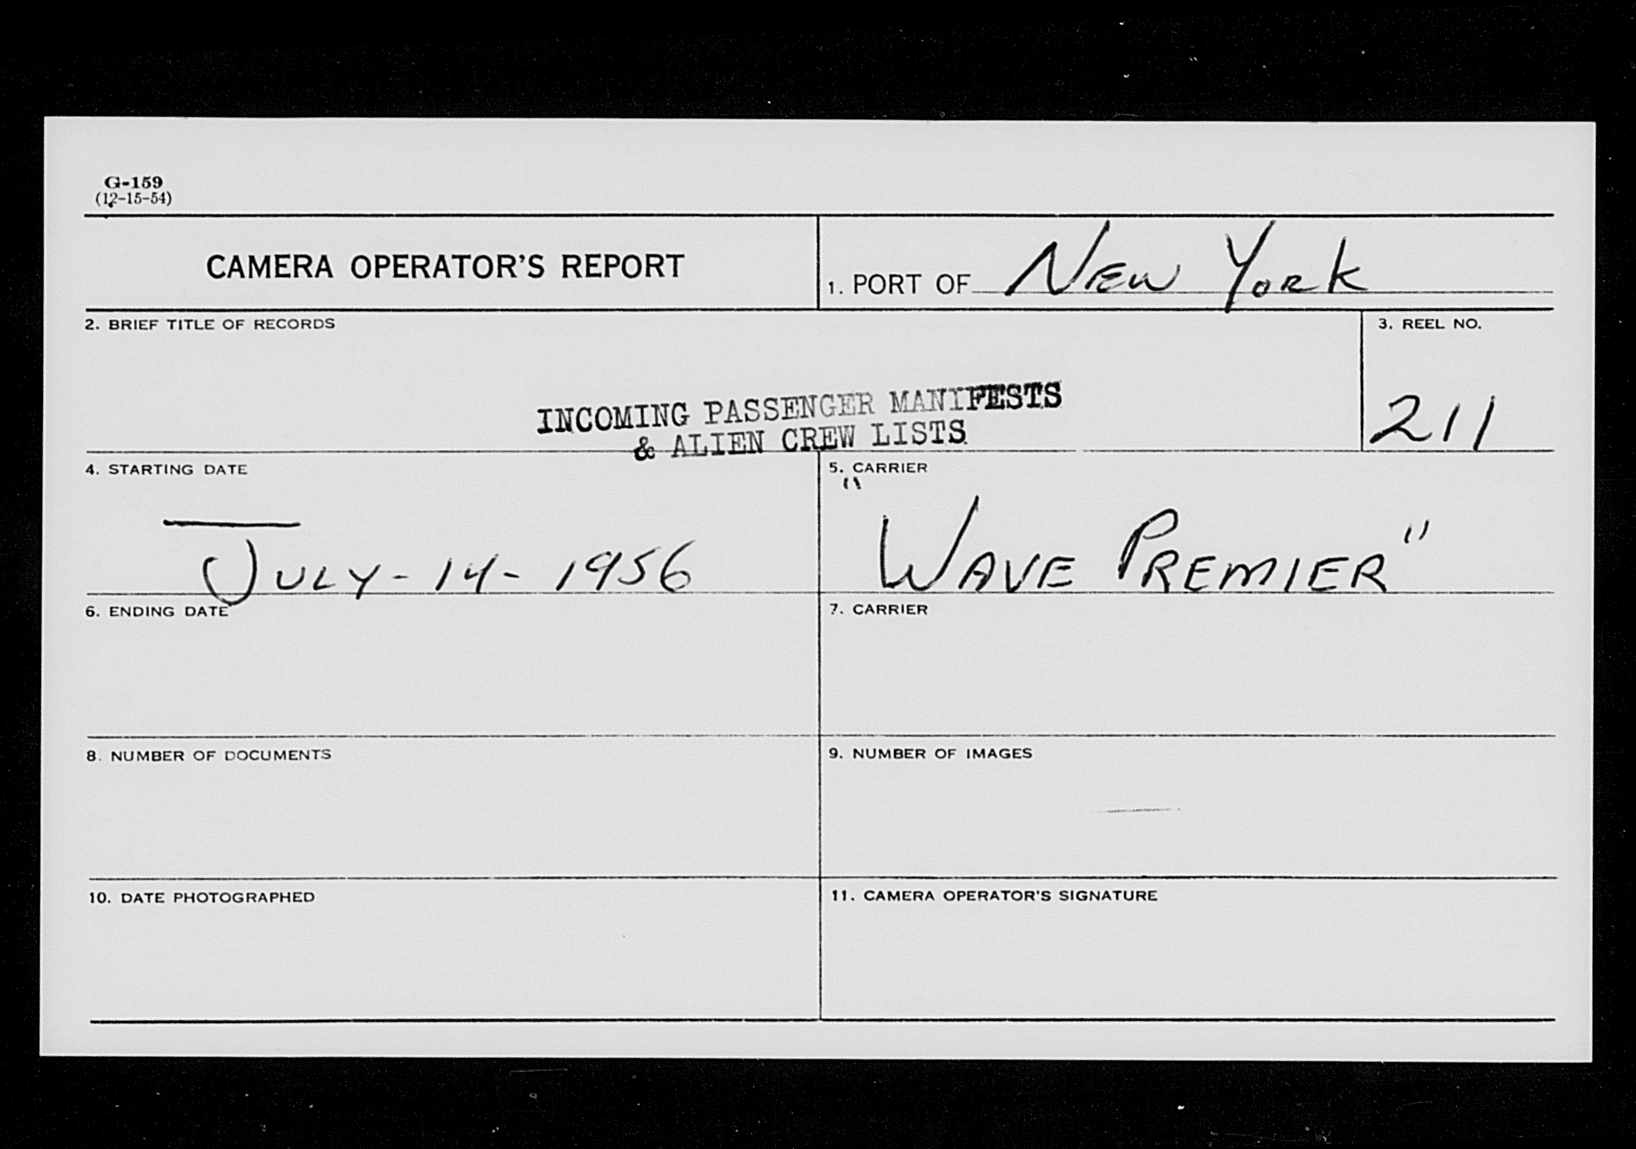 G-159
(12-15-54)
CAMERA OPERATOR'S REPORT
1. PORT OF New York
2. BRIEF TITLE OF RECORDS
3. REEL NO.
INCOMING PASSENGER MANIFESTS
& ALIEN CREW LISTS
211
4. STARTING DATE
5. CARRIER
JULY-14-1956
"WAVE PREMIER"
6. ENDING DATE
7. CARRIER
8. NUMBER OF DOCUMENTS
9. NUMBER OF IMAGES
10. DATE PHOTOGRAPHED
11. CAMERA OPERATOR'S SIGNATURE